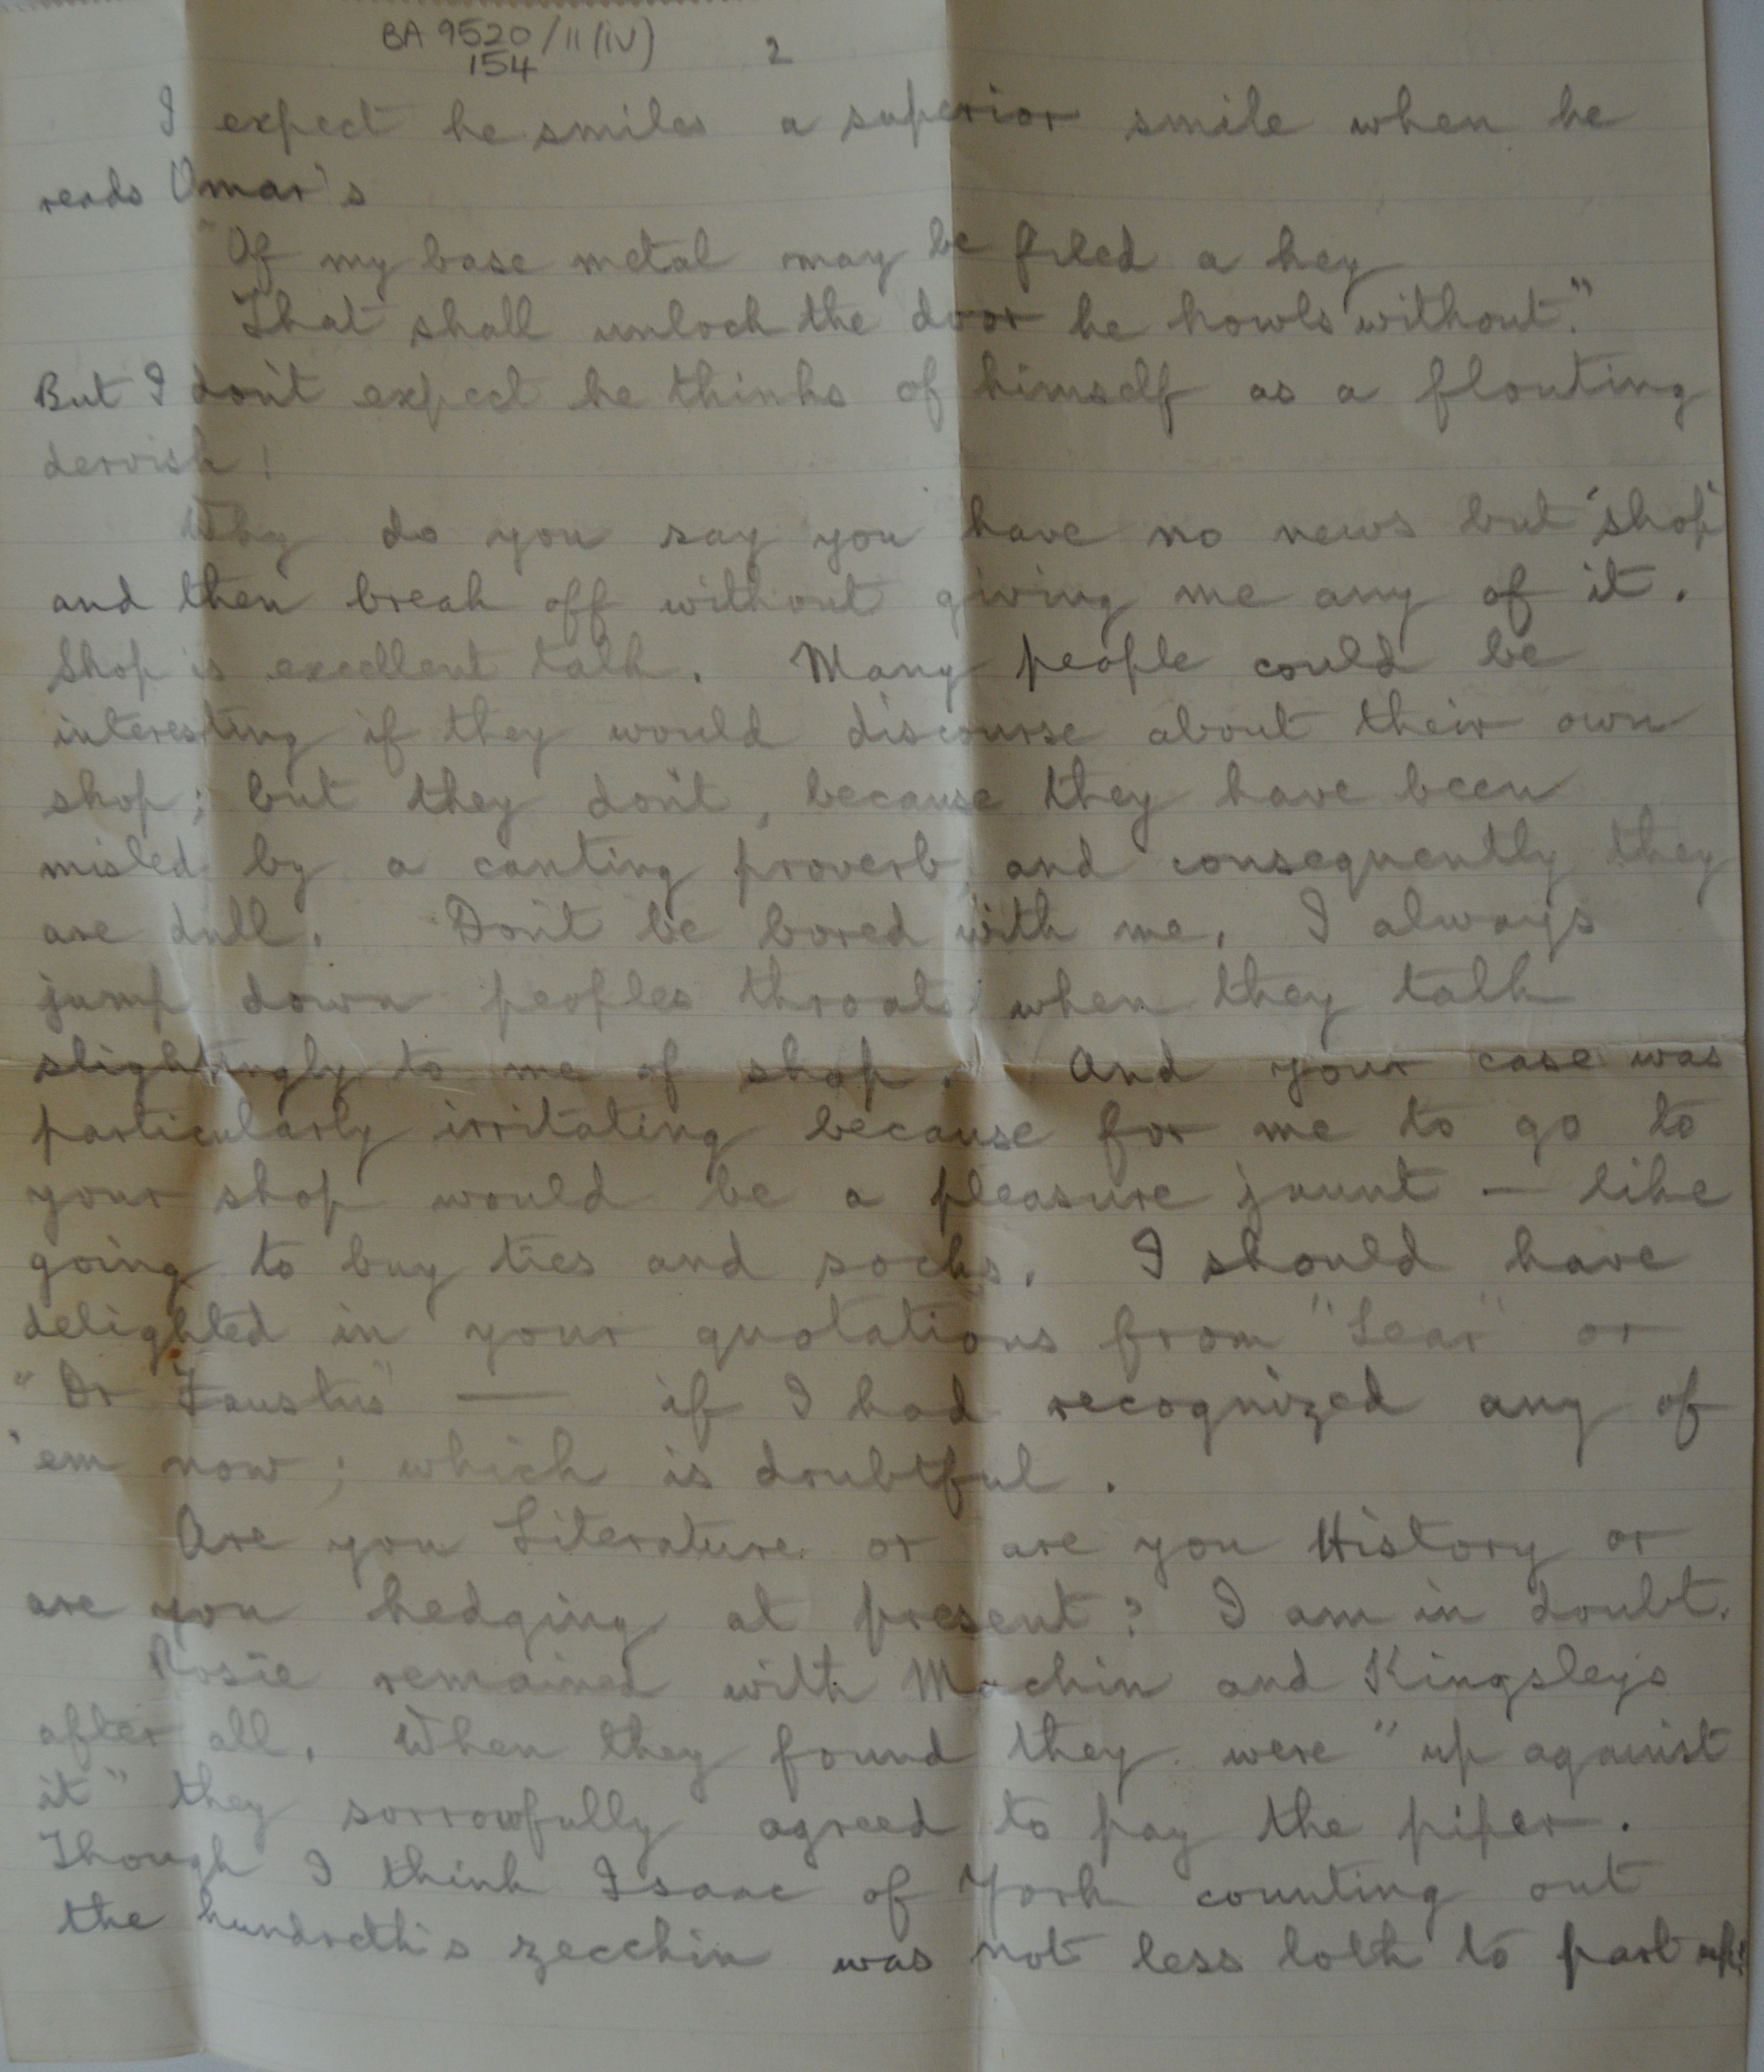 BA 9520/11(iv)
154
2
I expect he smiles a superior smile when he
reads Omar's
"Of my base metal may be filed a key
That shall unlock the door he howls without."
But I don't expect he thinks of himself as a flouting
dervish!
Why do you say you have no news but 'shop'
and then break off without giving me any of it.
Shop is excellent talk. Many people could be
interesting if they would discourse about their own
shop; but they don't, because they have been
misled by a canting proverb, and consequently they
are dull. Don't be bored with me. I always
jump down peoples throats when they talk
slightingly to me of shop. And your case was
particularly irritating because for me to go to
your shop would be a pleasure jaunt — like
going to buy ties and socks. I should have
delighted in your quotations from "Lear" or
"Dr Faustus" — if I had recognized any of
'em now; which is doubtful.
Are you Literature or are you History or
are you hedging at present? I am in doubt.
Rosie remained with Machin and Kingsleys
after all. When they found they were "up against
it" they sorrowfully agreed to pay the piper.
Though I think Isaac of York counting out
the hundreth's zecchin was not less loth to part